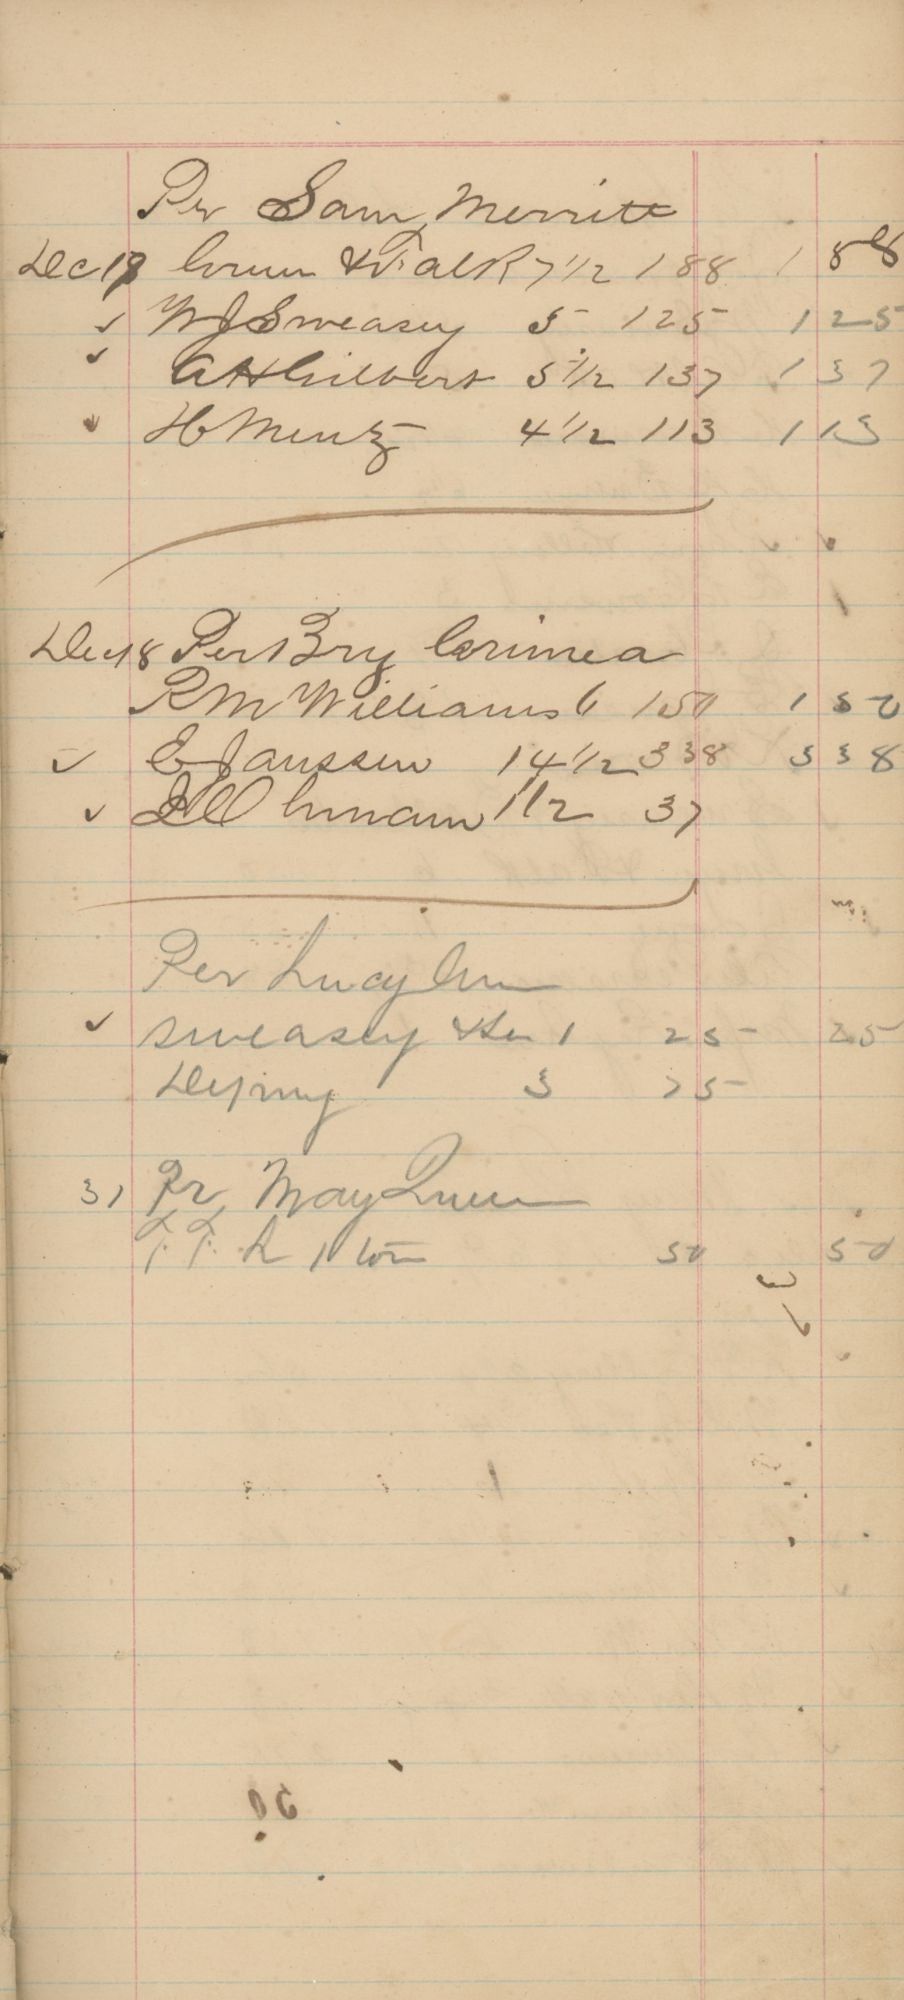 Per Sam Merritt
Dec 19 & Falk 7 1/2 188 1 88
✓ W J Sweasey 5 125 125
✓ A H Gilbert 5 1/2 137 137
H Mentz 4 1/2 113 113
Dec 18 Per Brg Crimea
R M Williams 6 150 150
✓ E Janssen 14 1/2 338 338
✓ 1 1/2 37
Per Lucy Ann
✓ Sweasey 1 25 25
3 75
31 Pr May Queen
F. F. L 1 ton 50 50